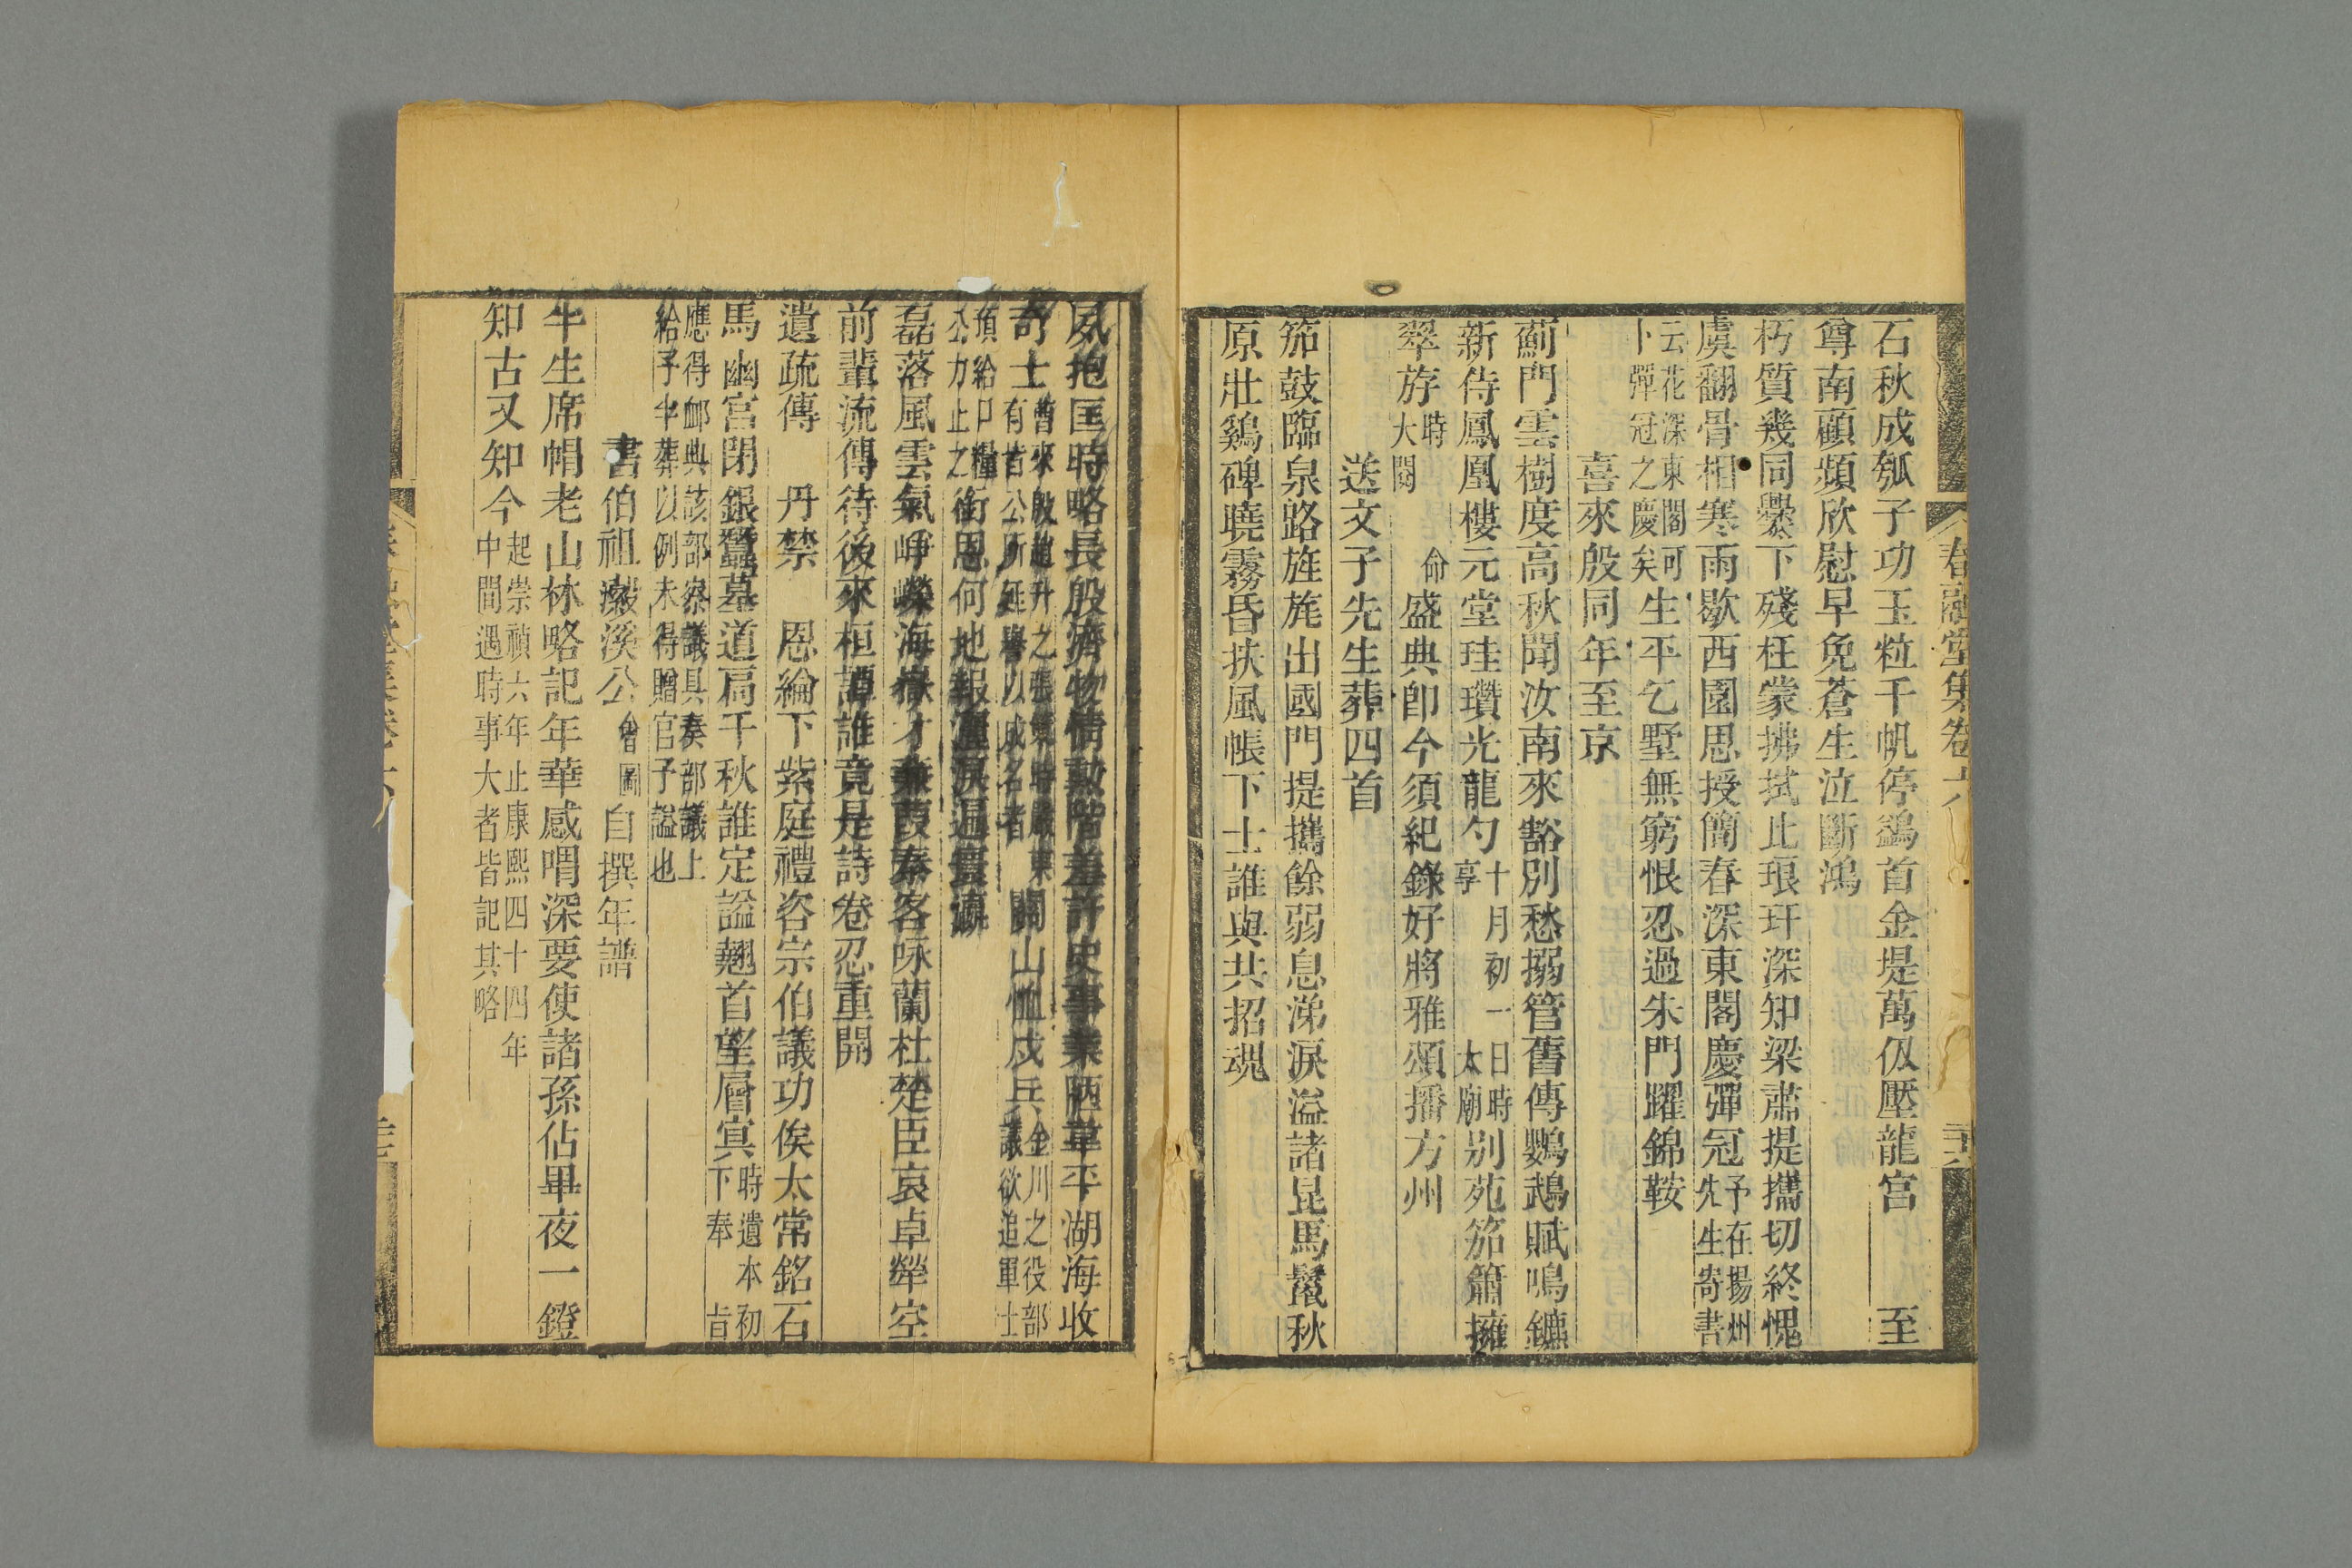 石秋成瓠子功玉粒千帆停鷁首金堤萬仭壓龍宮　至
尊南顧頻欣慰早免蒼生泣斷鴻
朽質幾同爨下殘枉蒙拂拭比琅玕深知梁肅提攜切終愧
虞翻骨相寒雨歇西園思授簡春深東閣慶彈冠予在揚州先生寄書
云花深東閣可卜彈冠之慶矣生平乞墅無窮恨忍過朱門躍錦鞍
喜來殷同年至京
薊門雲樹度高秋聞汝南來豁別愁搦管舊傳鸚鵡賦鳴鑣
新侍鳳凰樓元堂珪瓚光龍勺十月初一日時享太廟別苑笳簫擁
翠斿時大閱　命盛典卽今須紀錄好將雅頌播方州
送文子先生葬四首
笳鼓臨泉路旌旄出國門提攜餘弱息涕淚溢諸昆馬鬣秋
原壯鷄碑曉霧昏扶風帳下士誰與共招魂
春融堂集卷六
夙抱匡時略長殷濟物情勲階羞許史事業陋韋平湖海收
奇士曹來殷趙升之張策時嚴東有皆公所延譽以成名者關山恤戍兵金川之役部議欲追軍士
預給口糧公力止之銜恩何地報灑淚溫寰瀛
磊落風雲氣崢嶸海嶽才蒹葭秦客咏蘭杜楚臣哀卓犖空
前輩流傳待後來桓譚誰竟是詩卷忍重開
遺疏傳　丹禁　恩綸下紫庭禮咨宗伯議功俟太常銘石
馬幽宮閉銀蠶墓道扃千秋誰定謚翹首望層冥時遺本初下奉　旨
應得衈典該部察議具奏部議上給予半葬以例未得贈官予謚也
書伯祖瀫溪公會圖自撰年譜
半生席帽老山林略記年華感喟深要使諸孫佔畢夜一鐙
知古又知今起崇禎六年止康熙四十四年中間遇時事大者皆記其略